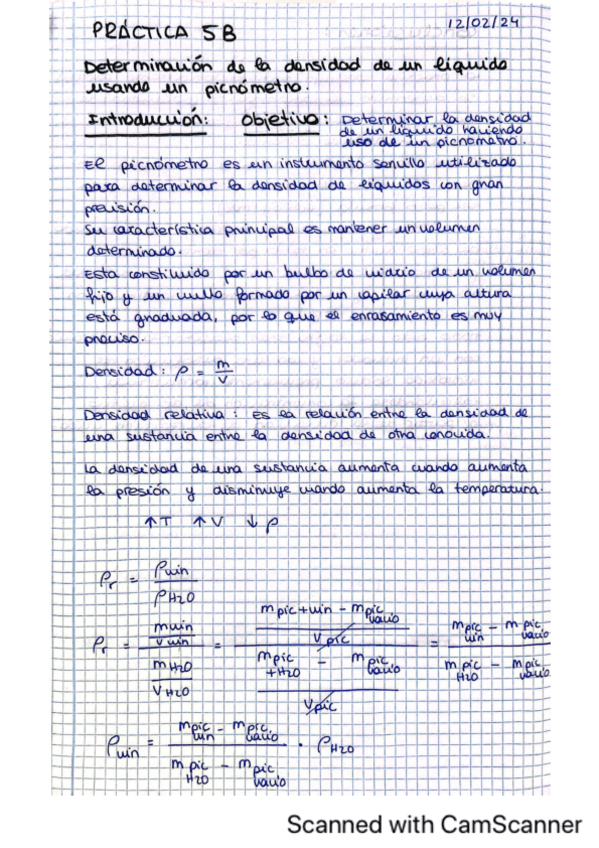 PRÁCTICA 5B
12/02/24
Determinación de la densidad de un líquido
usando un picnómetro.
Introducción: Objetivo: Determinar la densidad
de un líquido haciendo
uso de un picnómetro.
El picnómetro es un instrumento sencillo utilizado
para determinar la densidad de líquidos con gran
precisión.
Su característica principal es mantener un volumen
determinado.
Esta constituido por un bulbo de vidrio de un volumen
fijo y un cuello formado por un capilar cuya altura
está graduada, por lo que el enrasamiento es muy
preciso.
Densidad: ρ = m/V
Densidad relativa: es la relación entre la densidad de
una sustancia entre la densidad de otra conocida.
La densidad de una sustancia aumenta cuando aumenta
la presión y disminuye cuando aumenta la temperatura.
↑T ↑V ↓ρ
ρr = ρvin / ρH2O
ρr = (mvin / Vvin) / (mH2O / VH2O) = ((mpic+vin − mpic vacío) / Vpic) / ((mpic+H2O − mpic vacío) / Vpic) = (mpic vin − mpic vacío) / (mpic H2O − mpic vacío)
ρvin = (mpic vin − mpic vacío) / (mpic H2O − mpic vacío) · ρH2O
Scanned with CamScanner